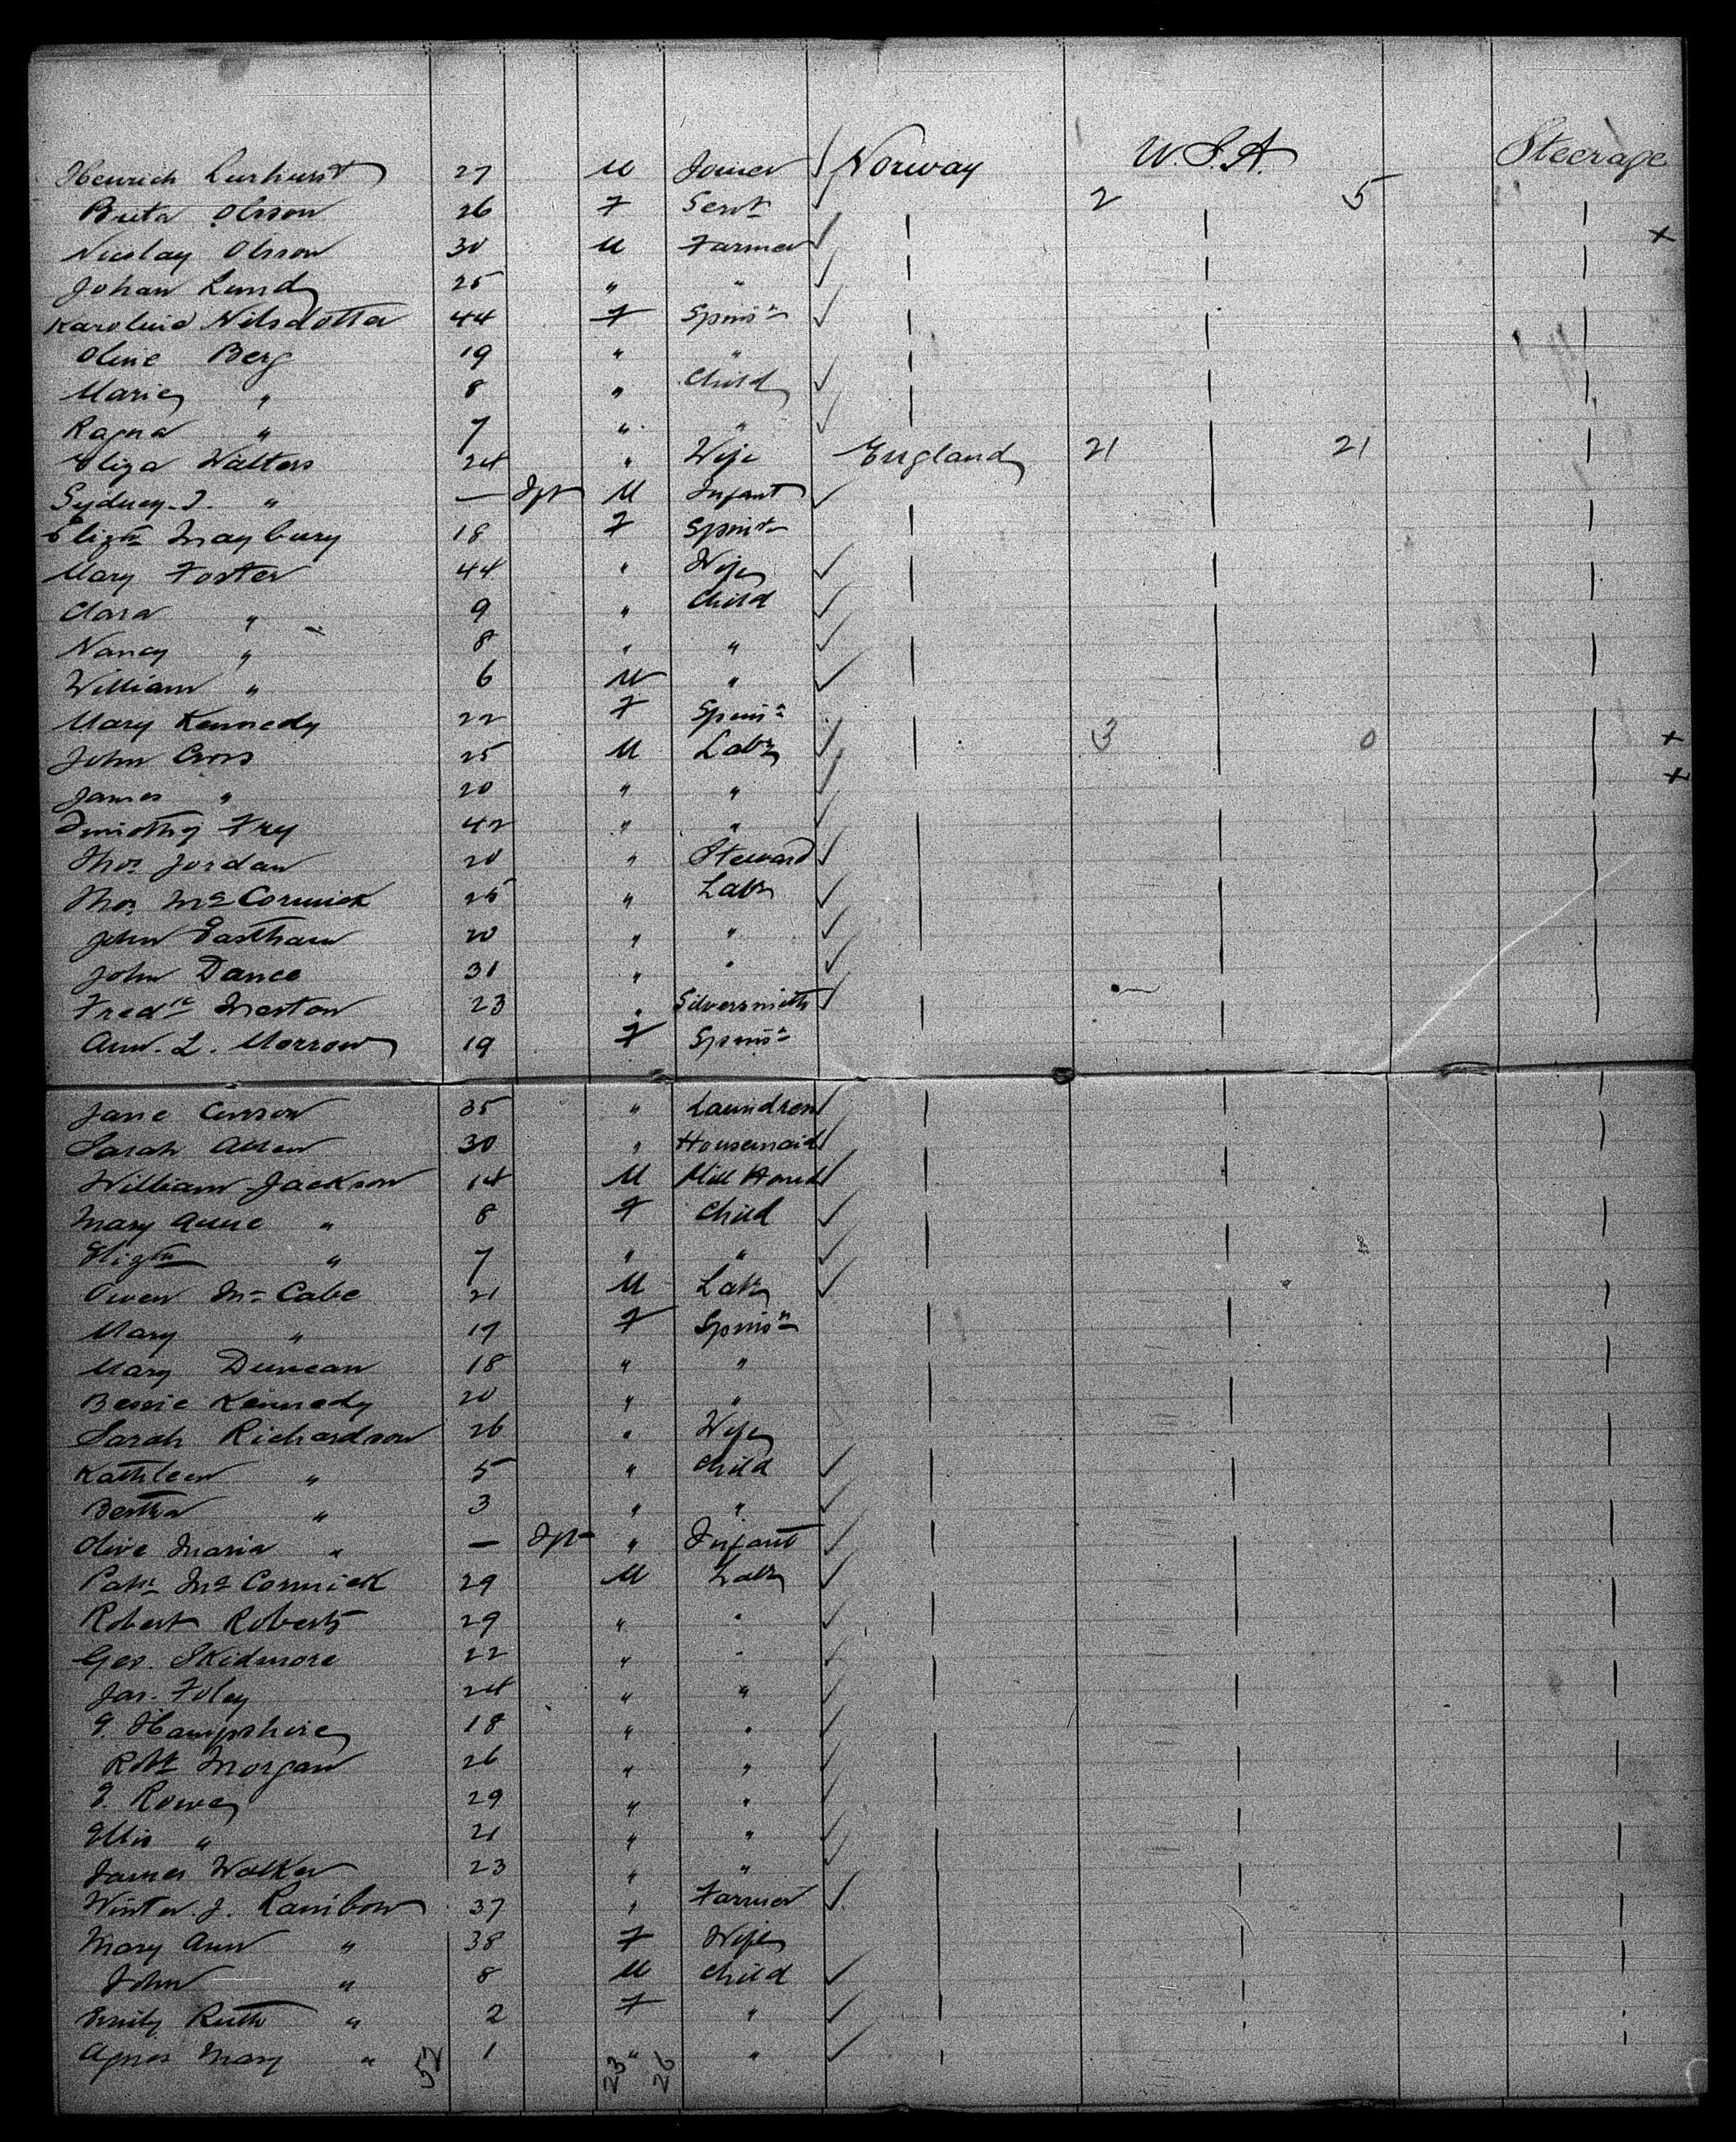 Henrich Lurhurst 27 M Joiner Norway U.S.A. Steerage
Brita Olsson 26 F Servt 2 5
Nicolay Olsson 30 M Farmer +
Johan Lund 25 " "
Karoline Nilsdotter 44 F Spinsr
Oline Berg 19 " "
Marie " 8 " Child
Ragna " 7 " "
Eliza Walters 24 " Wife England 21 21
Sydney. J. " — Ift M Infant
Elizth Maybury 18 F Spinstr
Mary Foster 44 " Wife
Clara " 9 " Child
Nancy " 8 " "
William " 6 M "
Mary Kennedy 22 F Spinsr
John Cross 25 M Labr 3 0 +
James " 20 " " +
Timothy Fry 42 " "
Thos Jordan 20 " Steward
Thos Mc Cormick 25 " Labr
John Eastham 20 " "
John Dance 31 " "
Fredk Meston 23 " Silversmith
Ann. L. Morrow 19 F Spinsr
Jane Conson 35 " Laundress
Sarah Allen 30 " Housemaid
William Jackson 14 M Mill Hand
Mary Anne " 8 F Child
Elizth " 7 " "
Owen Mc Cabe 21 M Labr
Mary " 17 F Spinsr
Mary Duncan 18 " "
Bessie Kennedy 20 " "
Sarah Richardson 26 " Wife
Kathleen " 5 " Child
Bertha " 3 " "
Olive Maria " — Ift " Infant
Patk Mc Cormick 29 M Labr
Robert Roberts 29 " "
Geo. Skidmore 22 " "
Jas. Foley 24 " "
G. Hampshire 18 " "
Robt Morgan 26 " "
E. Rowe 29 " "
Ellis " 21 " "
James Walker 23 " "
Winter. J. Rainbow 37 " Farmer
Mary Ann " 38 F Wife
John " 8 M Child
Emily Ruth " 2 F "
Agnes Mary " 1 " "
52 23 26